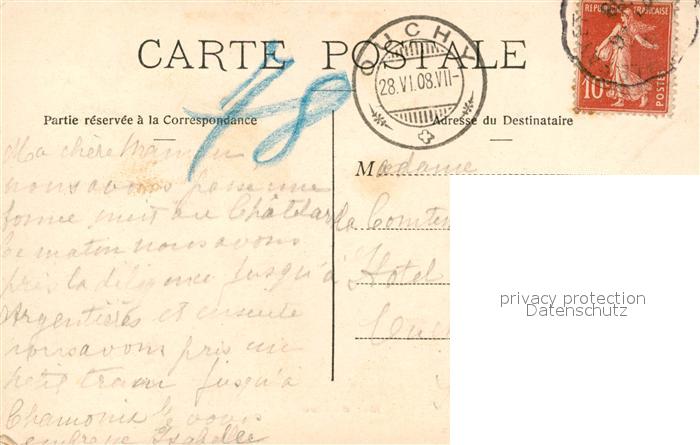 CARTE POSTALE
78
OUCHY
28.VI.08.VII-
RÉPUBLIQUE FRANÇAISE
10
POSTES
Partie réservée à la Correspondance
Adresse du Destinataire
Ma chère Maman
nous avons passé une
bonne nuit au Châtelard
ce matin nous avons
pris la diligence jusqu'à
Argentières et ensuite
nous avons pris un
petit train jusqu'à
Chamonix Je vous
embrasse Isabelle
Madame
la Comtesse
Hotel
Ouchy
privacy protection
Datenschutz